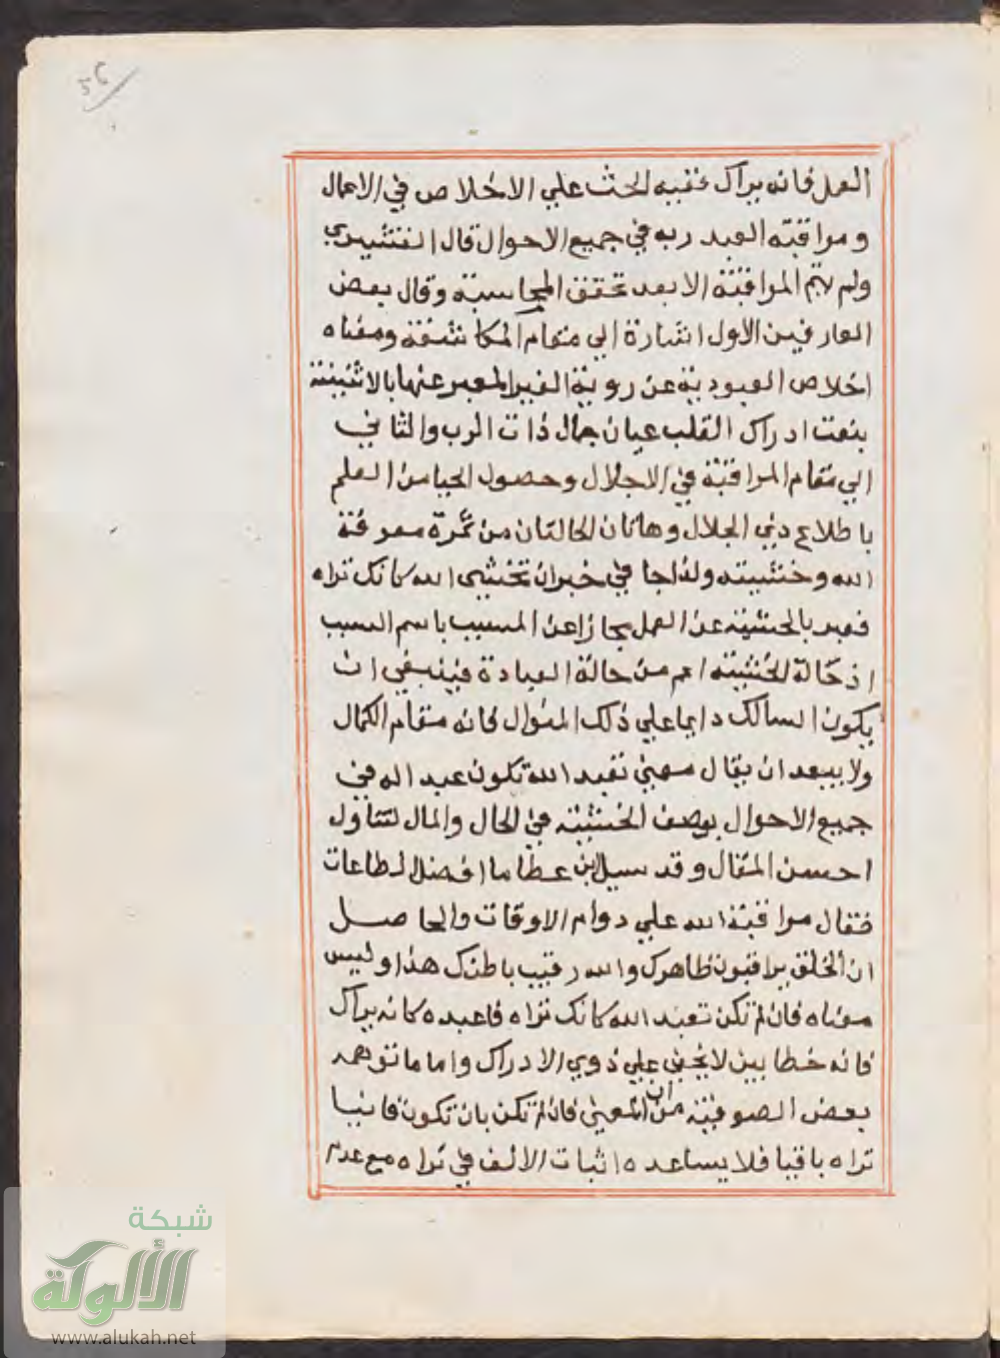 56
العمل فانه يراك ففيه الحث علي الاخلاص في الاعمال
ومراقبة العبد ربه في جميع الاحوال قال القشيري
ولم تتم المراقبة الا بعد تحقق المحاسبة وقال بعض
العارفين الاول اشارة الي مقام المكاشفة ومعناه
اخلاص العبودية عن روية الغير المعبر عنها بالاثنينية
بنعت ادراك القلب عيان جمال ذات الرب والثاني
الي مقام المراقبة في الاجلال وحصول الحيا من العلم
باطلاع ذي الجلال وهاتان الحالتان من ثمرة معرفة
الله وخشيته ولذا جا في خبر ان تخشي الله كانك تراه
فعبر بالخشية عن العمل مجازا عن المسبب باسم السبب
اذ حالة الخشية اعم من حالة العبادة فينبغي ان
يكون السالك دايما علي ذلك المنوال فانه مقام الكمال
ولا يبعد ان يقال معني تعبد الله تكون عبدا له في
جميع الاحوال بوصف الخشية في الحال والمال لتتاول
احسن المقال وقد سيل ابن عطا ما افضل الطاعات
فقال مراقبة الله علي دوام الاوقات والحاصل
ان الخلق يراقبون ظاهرك والله رقيب باطنك هذا وليس
معناه فان لم تكن تعبد الله كانك تراه فاعبده كانه يراك
فانه خطا بين لا يخفي علي ذوي الادراك واما ما توهمه
بعض الصوفية من ان المعني فان لم تكن بان تكون فانيا
تراه باقيا فلا يساعده اثبات الالف في تراه مع عدم
شبكة
الألوكة
www.alukah.net